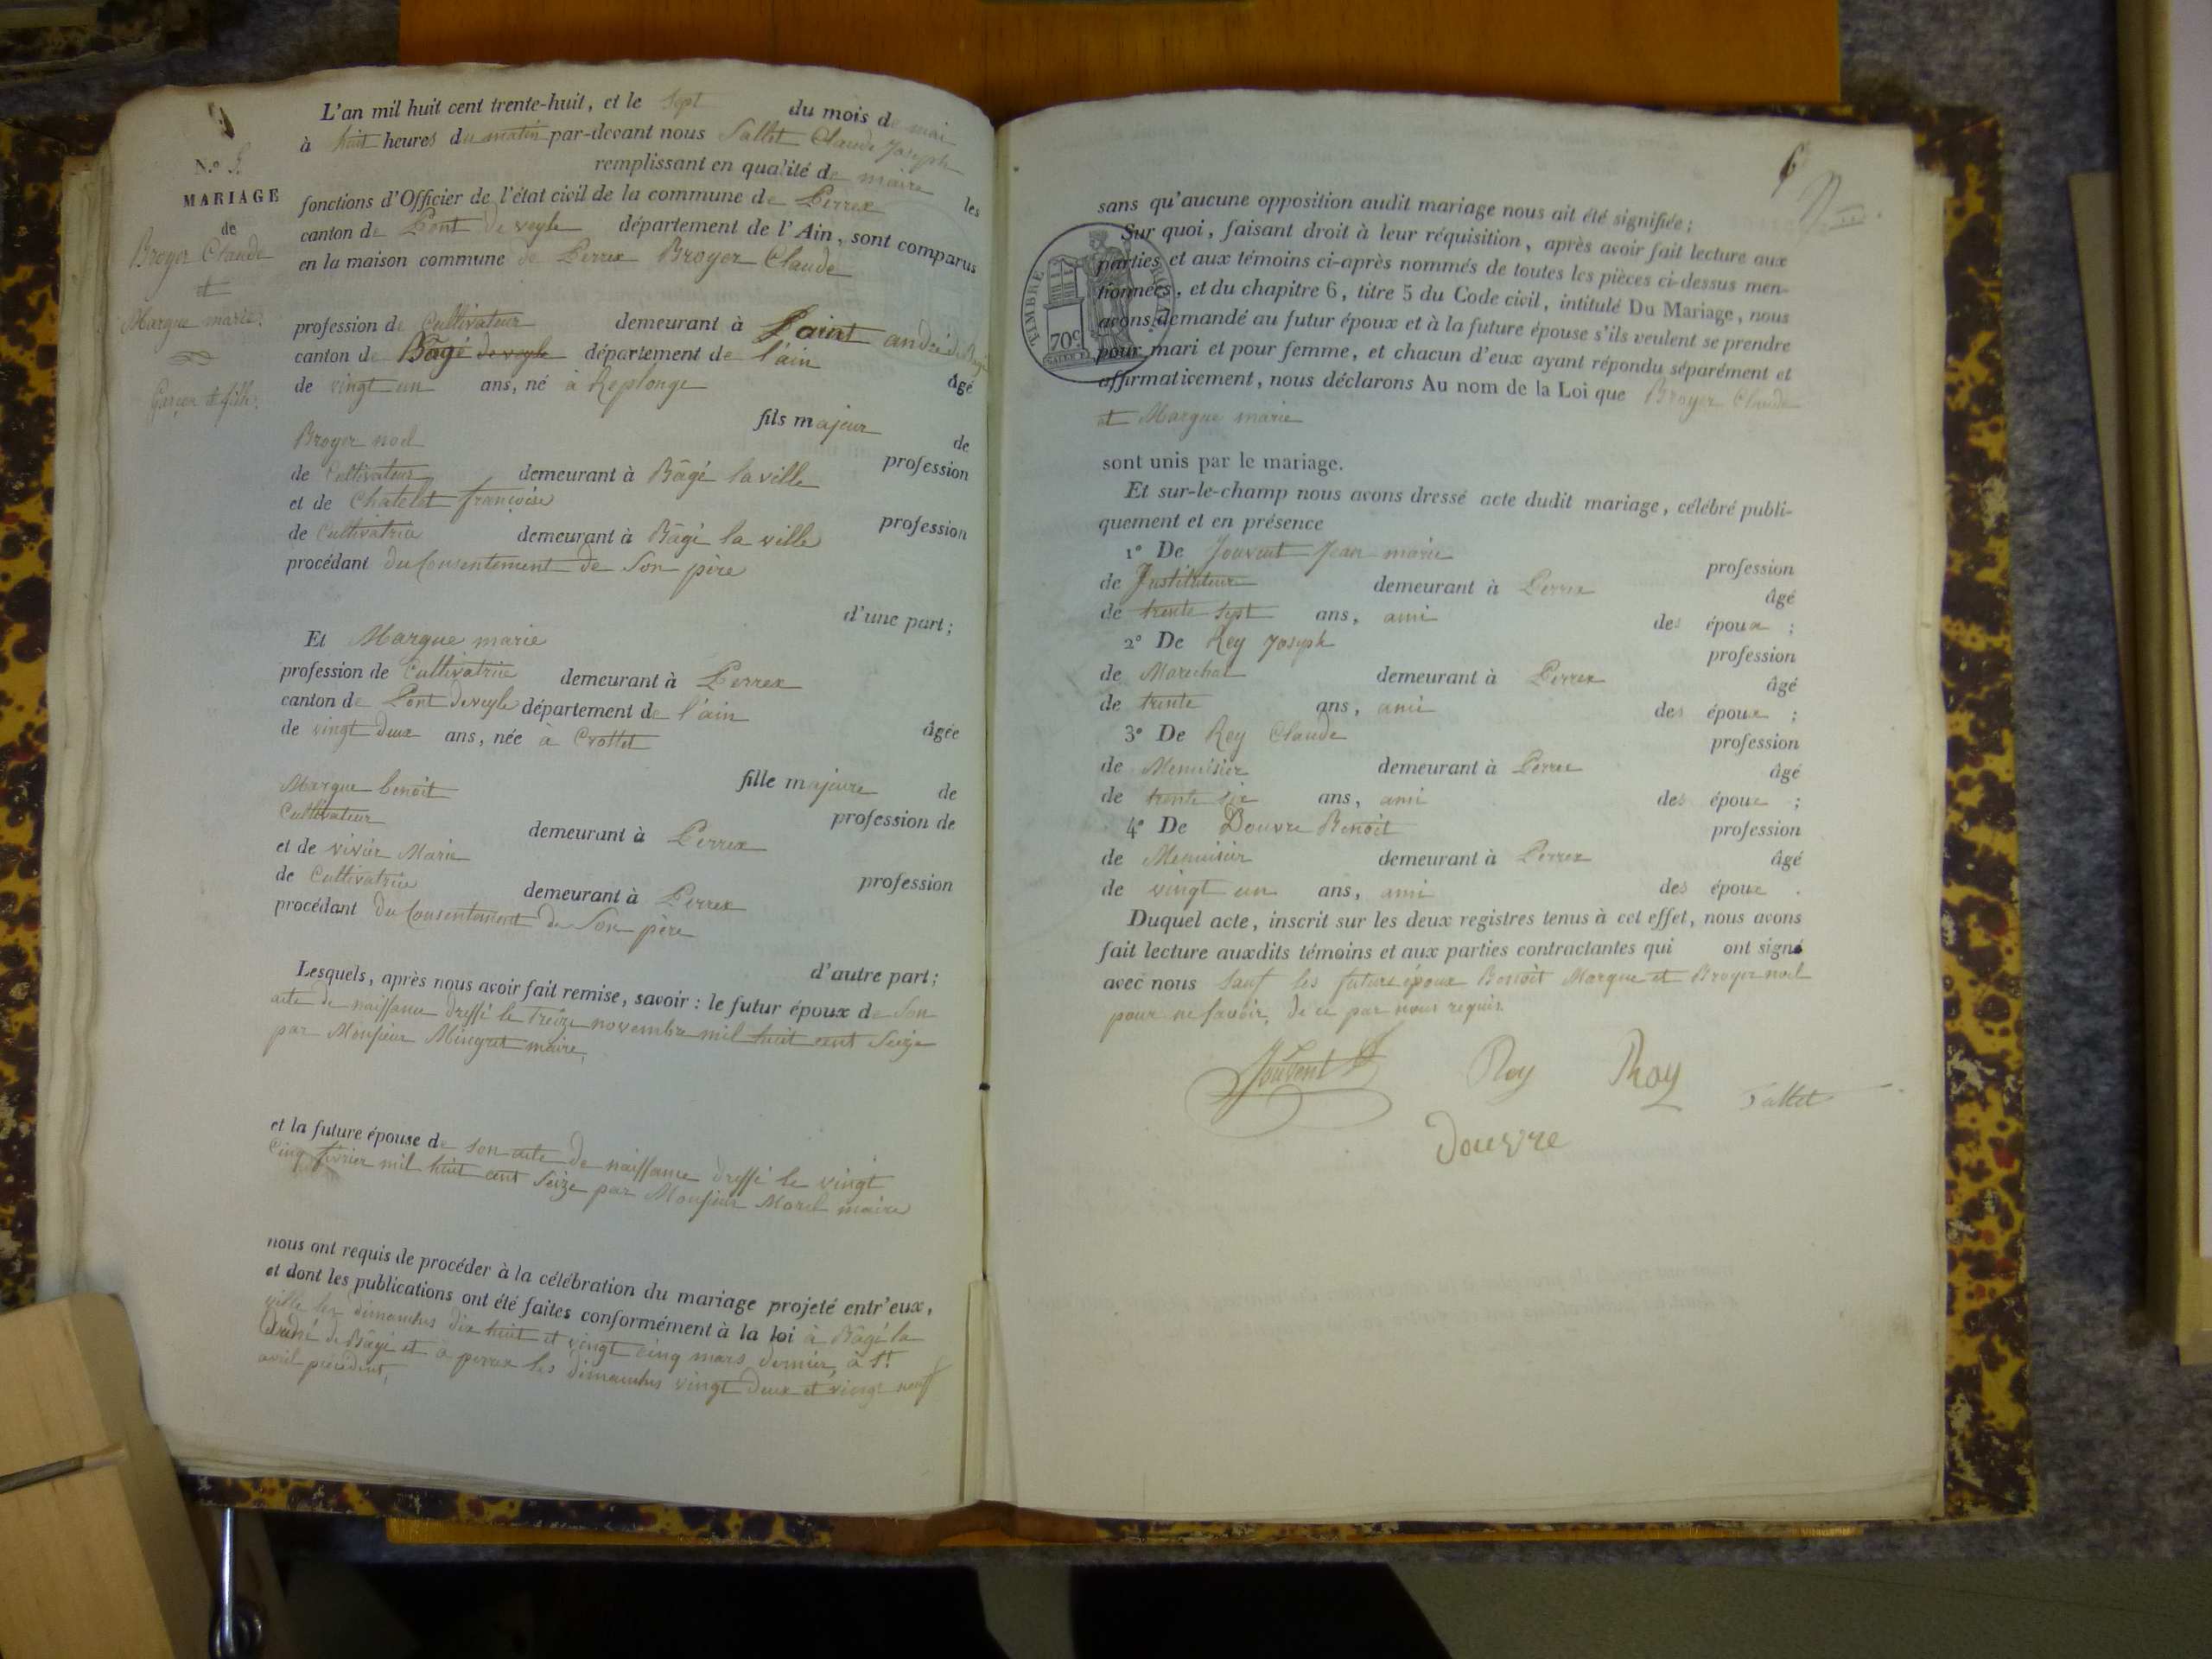 L'an mil huit cent trente-huit, et le sept du mois de mai
à huit heures du matin par-devant nous Sallet Claude Joseph
remplissant en qualité de maire les
fonctions d'Officier de l'état civil de la commune de Perrex
canton de Pont de veyle département de l'Ain, sont comparus
en la maison commune de Perrex Broyer Claude
N.º
MARIAGE
de
Broyer Claude
et
Margue marie.
Garçon et fille.
profession de Cultivateur demeurant à Saint andré de Bagé
canton de Bâgé de veyle département de l'ain âgé
de vingt un ans, né à Replonge
fils majeur de
Broyer noel profession
de Cultivateur demeurant à Bâgé la ville
et de Chatelet françoise profession
de Cultivatrice demeurant à Bâgé la ville
procédant du Consentement de Son père
d'une part;
Et Margue marie
profession de Cultivatrice demeurant à Perrex
canton de Pont deveyle département de l'ain âgée
de vingt deux ans, née à Crottet
fille majeure de
Margue benoit profession de
Cultivateur demeurant à Perrex
et de vivier Marie profession
de Cultivatrice demeurant à Perrex
procédant du Consentement de Son père
d'autre part;
Lesquels, après nous avoir fait remise, savoir : le futur époux de Son
acte de naissance dressé le treize novembre mil huit cent Seize
par Monsieur Mingret maire,
et la future épouse de son acte de naissance dressé le vingt
Cinq février mil huit cent Seize par Monsieur Morel maire
nous ont requis de procéder à la célébration du mariage projeté entr'eux,
et dont les publications ont été faites conformément à la loi à Bâgé la
ville les dimanches dix huit et vingt cinq mars dernier, à St
andré de Bâgé et à perrex les dimanches vingt deux et vingt neuf
avril précédent,
6
sans qu'aucune opposition audit mariage nous ait été signifiée;
Sur quoi, faisant droit à leur réquisition, après avoir fait lecture aux
parties et aux témoins ci-après nommés de toutes les pièces ci-dessus men-
tionnées, et du chapitre 6, titre 5 du Code civil, intitulé Du Mariage, nous
avons demandé au futur époux et à la future épouse s'ils veulent se prendre
pour mari et pour femme, et chacun d'eux ayant répondu séparément et
affirmativement, nous déclarons Au nom de la Loi que Broyer Claude
et Margue marie
TIMBRE ROYAL
70c
sont unis par le mariage.
Et sur-le-champ nous avons dressé acte dudit mariage, célébré publi-
quement et en présence
1º De Jouvent Jean marie profession
de Instituteur demeurant à Perrex âgé
de trente sept ans, ami des époux ;
2º De Rey Joseph profession
de Marechal demeurant à Perrex âgé
de trente ans, ami des époux ;
3º De Rey Claude profession
de Menuisier demeurant à Perrex âgé
de trente six ans, ami des époux ;
4º De Douvre Benoit profession
de Menuisier demeurant à Perrex âgé
de vingt un ans, ami des époux .
Duquel acte, inscrit sur les deux registres tenus à cet effet, nous avons
fait lecture auxdits témoins et aux parties contractantes qui ont signé
avec nous Sauf les futurs époux Benoît Margue et Broyer noel
pour ne savoir, de ce par nous requis.
Jouvent Rey Rey Sallet
Douvre